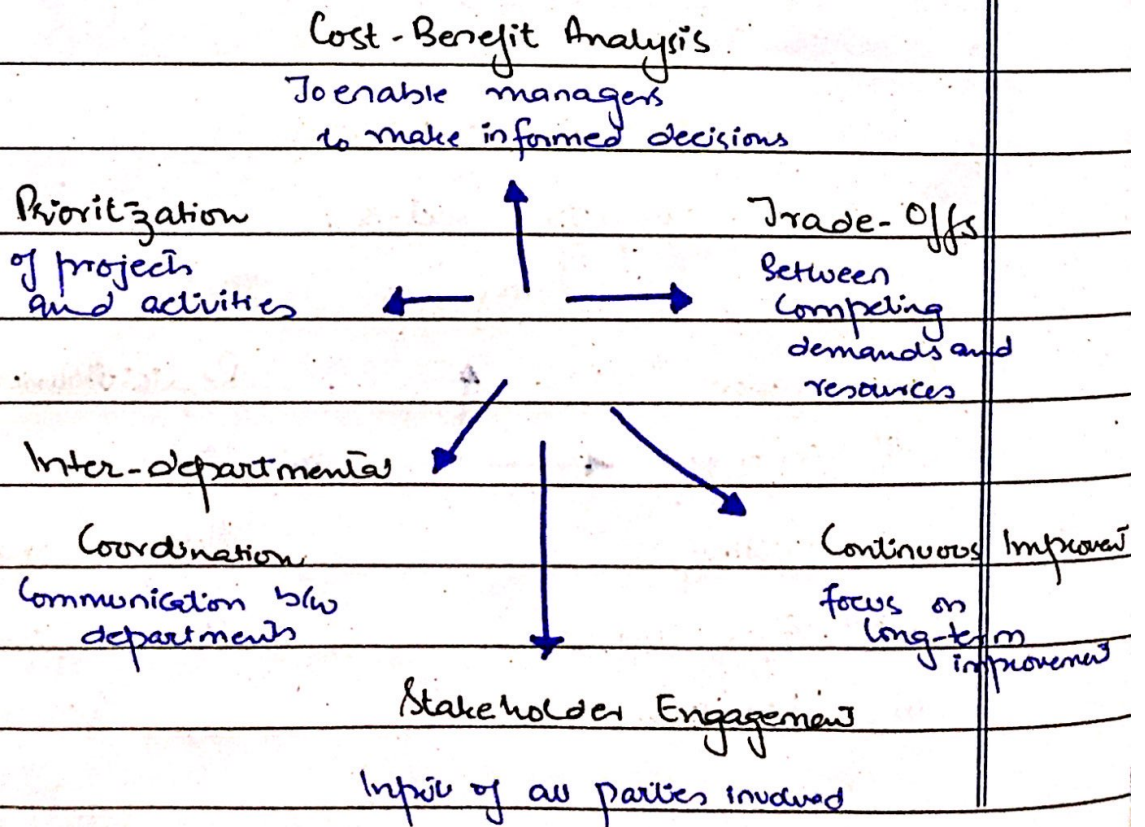 Cost-Benefit Analysis.
To enable managers
to make informed decisions
Prioritization
of projects
and activities
Trade-Offs
Between
Competing
demands and
resources
Inter-departmental
Coordination
Communication b/w
departments
Continuous Improvemt
focus on
long-term
improvement
Stakeholder Engagement
Input of all parties involved